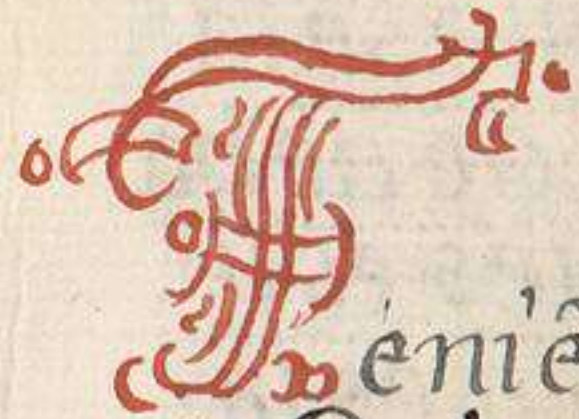 Téniẽ